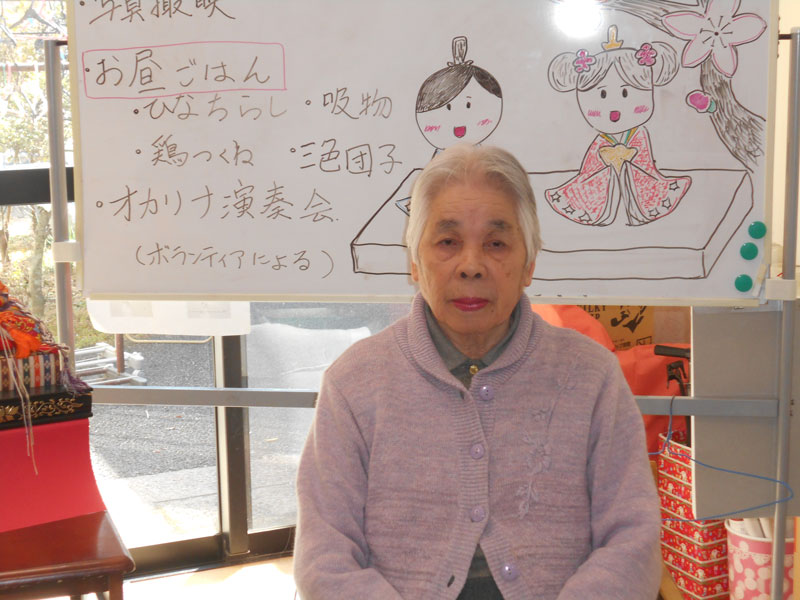 ・写真撮影
・お昼ごはん
・ひなちらし ・吸物
・鶏つくね ・三色団子
・オカリナ演奏会
(ボランティアによる)